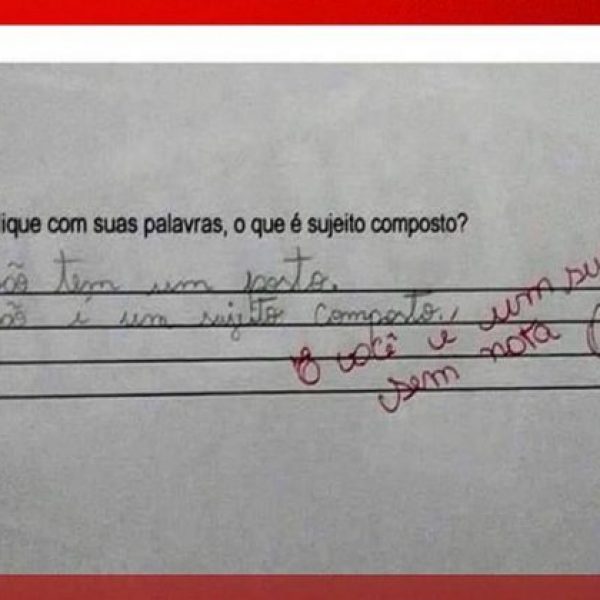 ique com suas palavras, o que é sujeito composto?
ão tem um posto.
ão é um sujeito composto.
E você é um su
sem nota